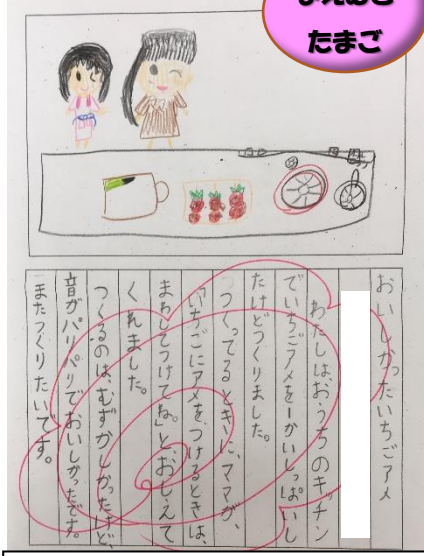 たまご
おいしかったいちごアメ
わたしは、おうちのキッチン
でいちごアメを一かいしっぱいし
たけどつくりました。
つくってるときに、ママが、
「いちごにアメをつけるときは、
まわしてつけてね。」と、おしえて
くれました。
つくるのは、むずかしかったけど、
音がパリパリでおいしかったです。
またつくりたいです。